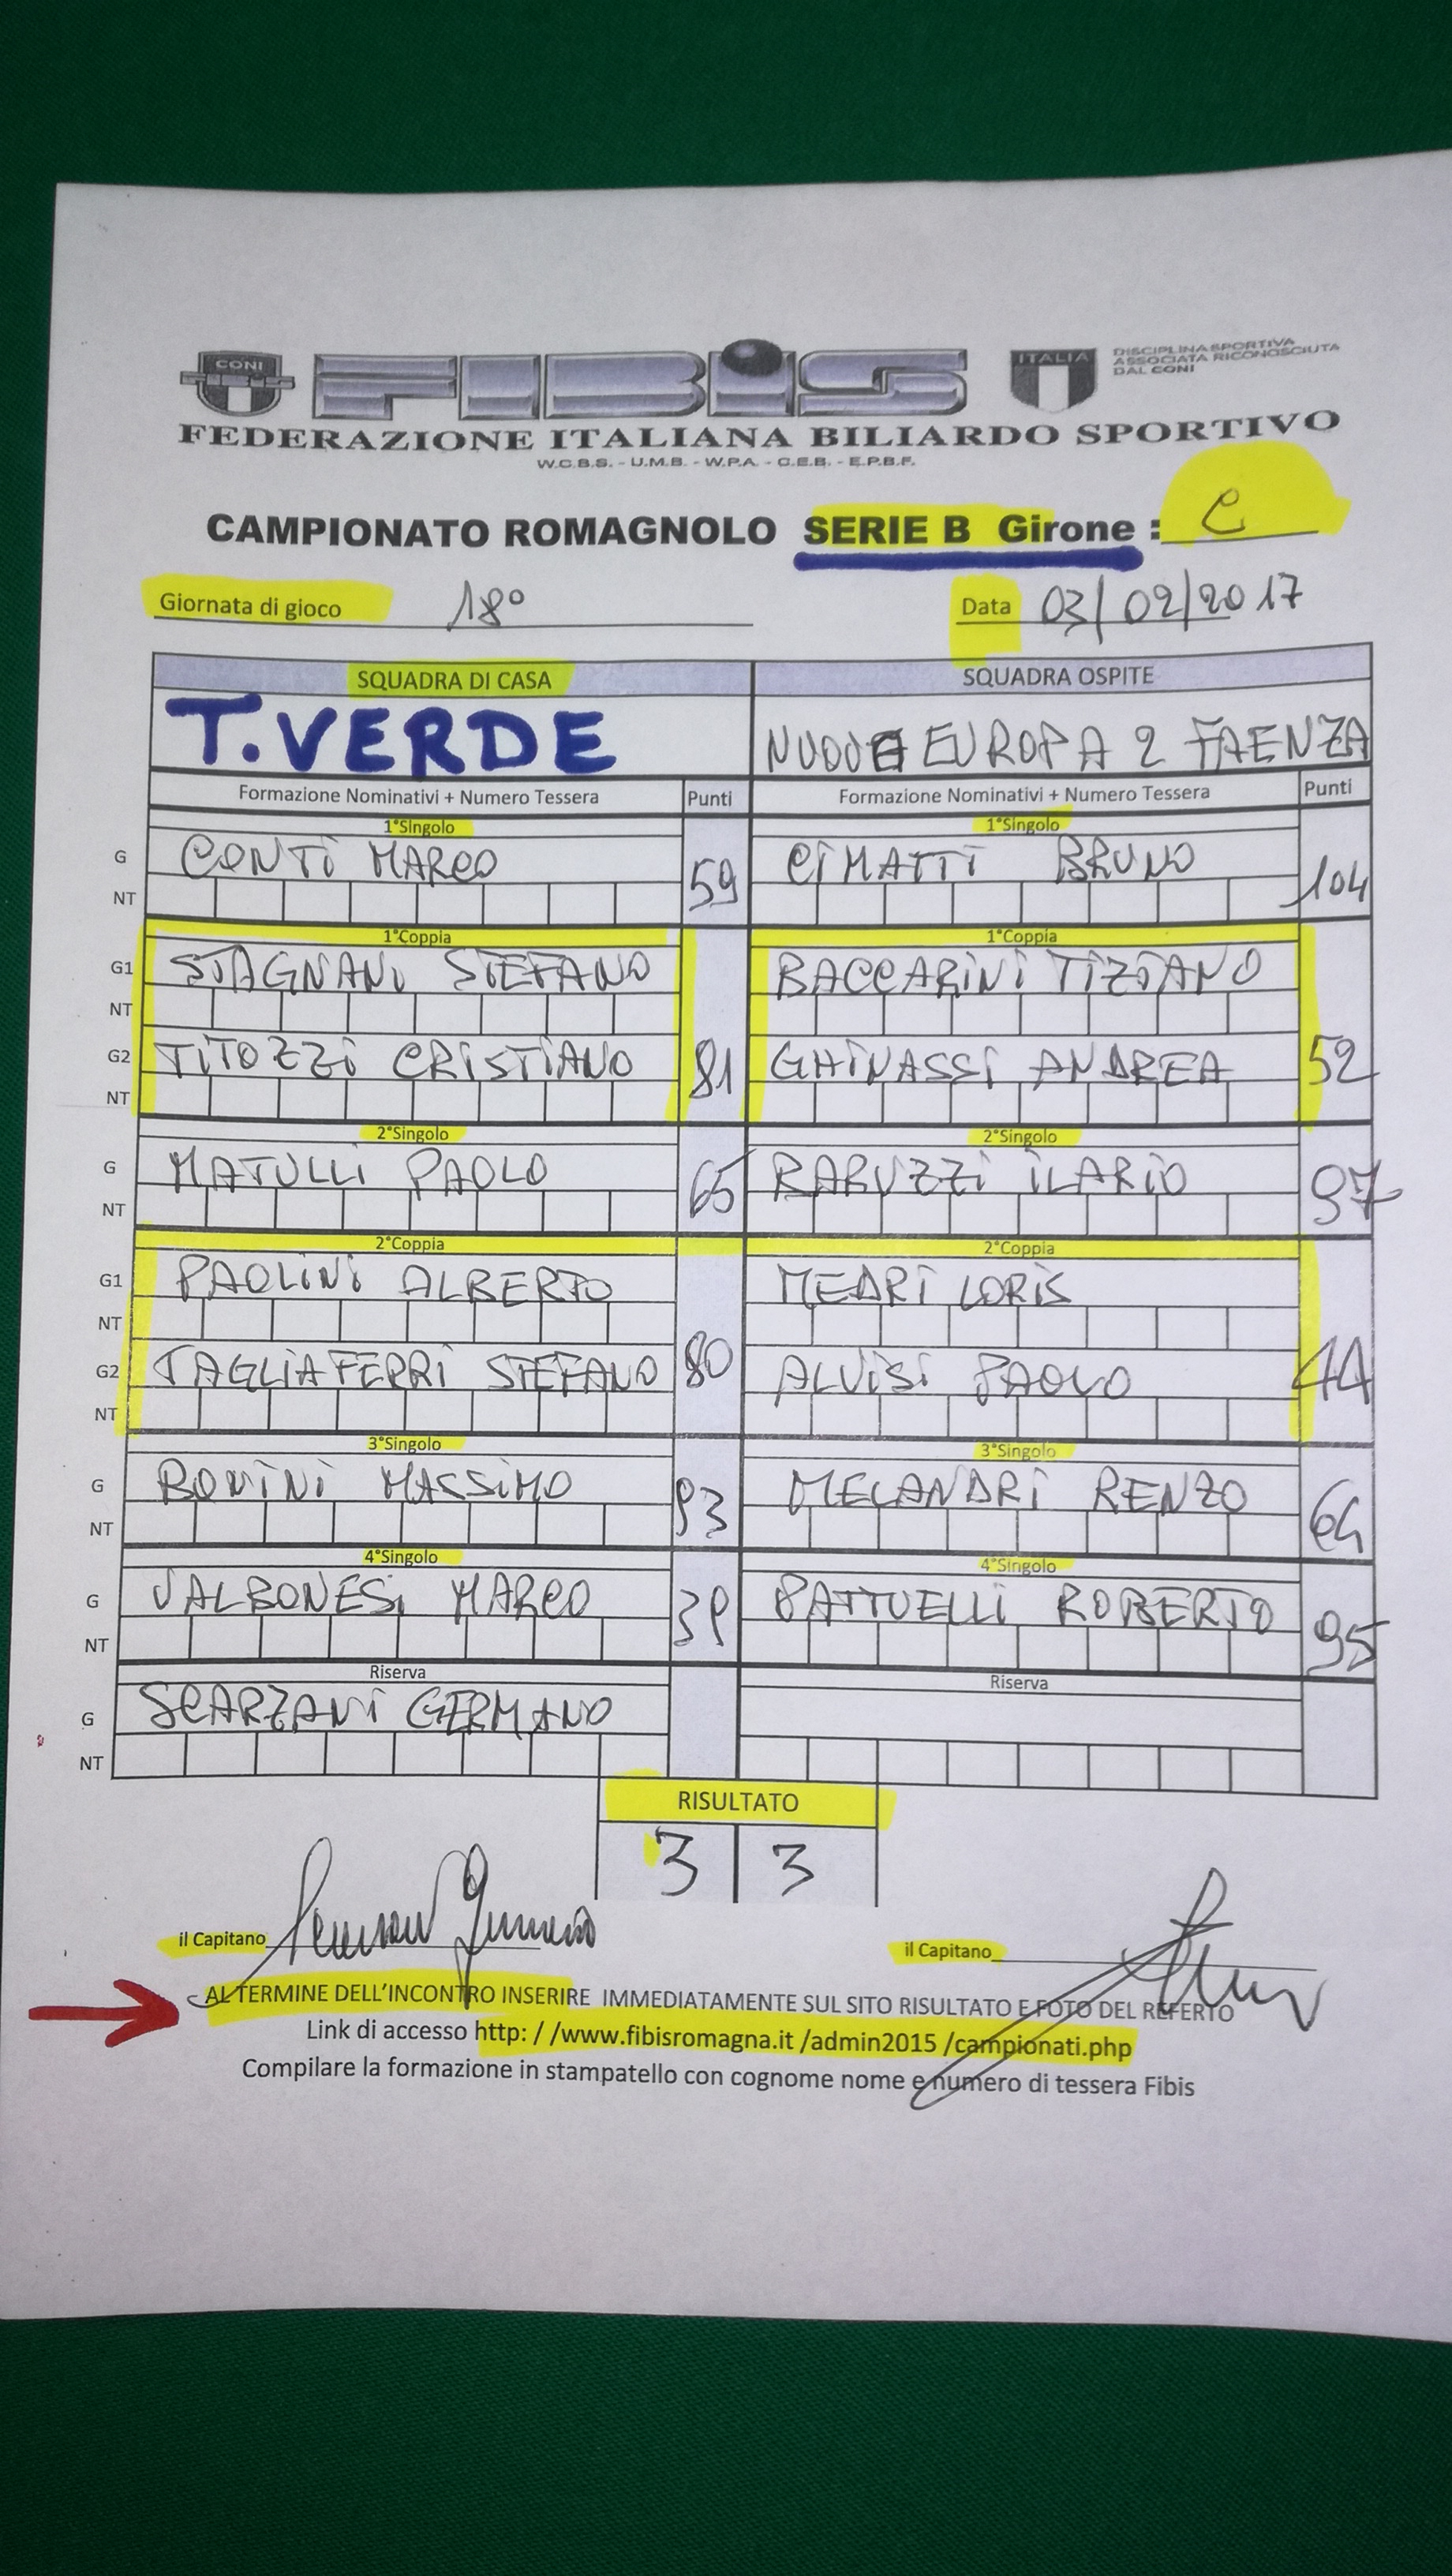 CONI
FIBIS
FIBiS
ITALIA
DISCIPLINA SPORTIVA
ASSOCIATA RICONOSCIUTA
DAL CONI
FEDERAZIONE ITALIANA BILIARDO SPORTIVO
W.C.B.S. - U.M.B. - W.P.A. - C.E.B. - E.P.B.F.
CAMPIONATO ROMAGNOLO SERIE B Girone : C
Giornata di gioco 18° Data 03/02/2017
SQUADRA DI CASA SQUADRA OSPITE
T.VERDE NUOVE EUROPA 2 FAENZA
Formazione Nominativi + Numero Tessera Punti Formazione Nominativi + Numero Tessera Punti
1°Singolo 1°Singolo
G CONTI MARCO 59 CIMATTI BRUNO 104
NT
1°Coppia 1°Coppia
G1 STAGNANI STEFANO BACCARINI TIZIANO
NT
G2 TITOZZI CRISTIANO 81 GHINASSI ANDREA 52
NT
2°Singolo 2°Singolo
G MATULLI PAOLO 65 RARUZZI ILARIO 97
NT
2°Coppia 2°Coppia
G1 PAOLINI ALBERTO MEDRI LORIS
NT
G2 TAGLIAFERRI STEFANO 80 ALVISI PAOLO 44
NT
3°Singolo 3°Singolo
G BONINI MASSIMO 93 MELANDRI RENZO 64
NT
4°Singolo 4°Singolo
G VALBONESI MARCO 39 BATTUELLI ROBERTO 95
NT
Riserva Riserva
G SCARZANI GERMANO
NT
RISULTATO
3 3
il Capitano il Capitano
AL TERMINE DELL'INCONTRO INSERIRE IMMEDIATAMENTE SUL SITO RISULTATO E FOTO DEL REFERTO
Link di accesso http: / /www.fibisromagna.it /admin2015 /campionati.php
Compilare la formazione in stampatello con cognome nome e numero di tessera Fibis